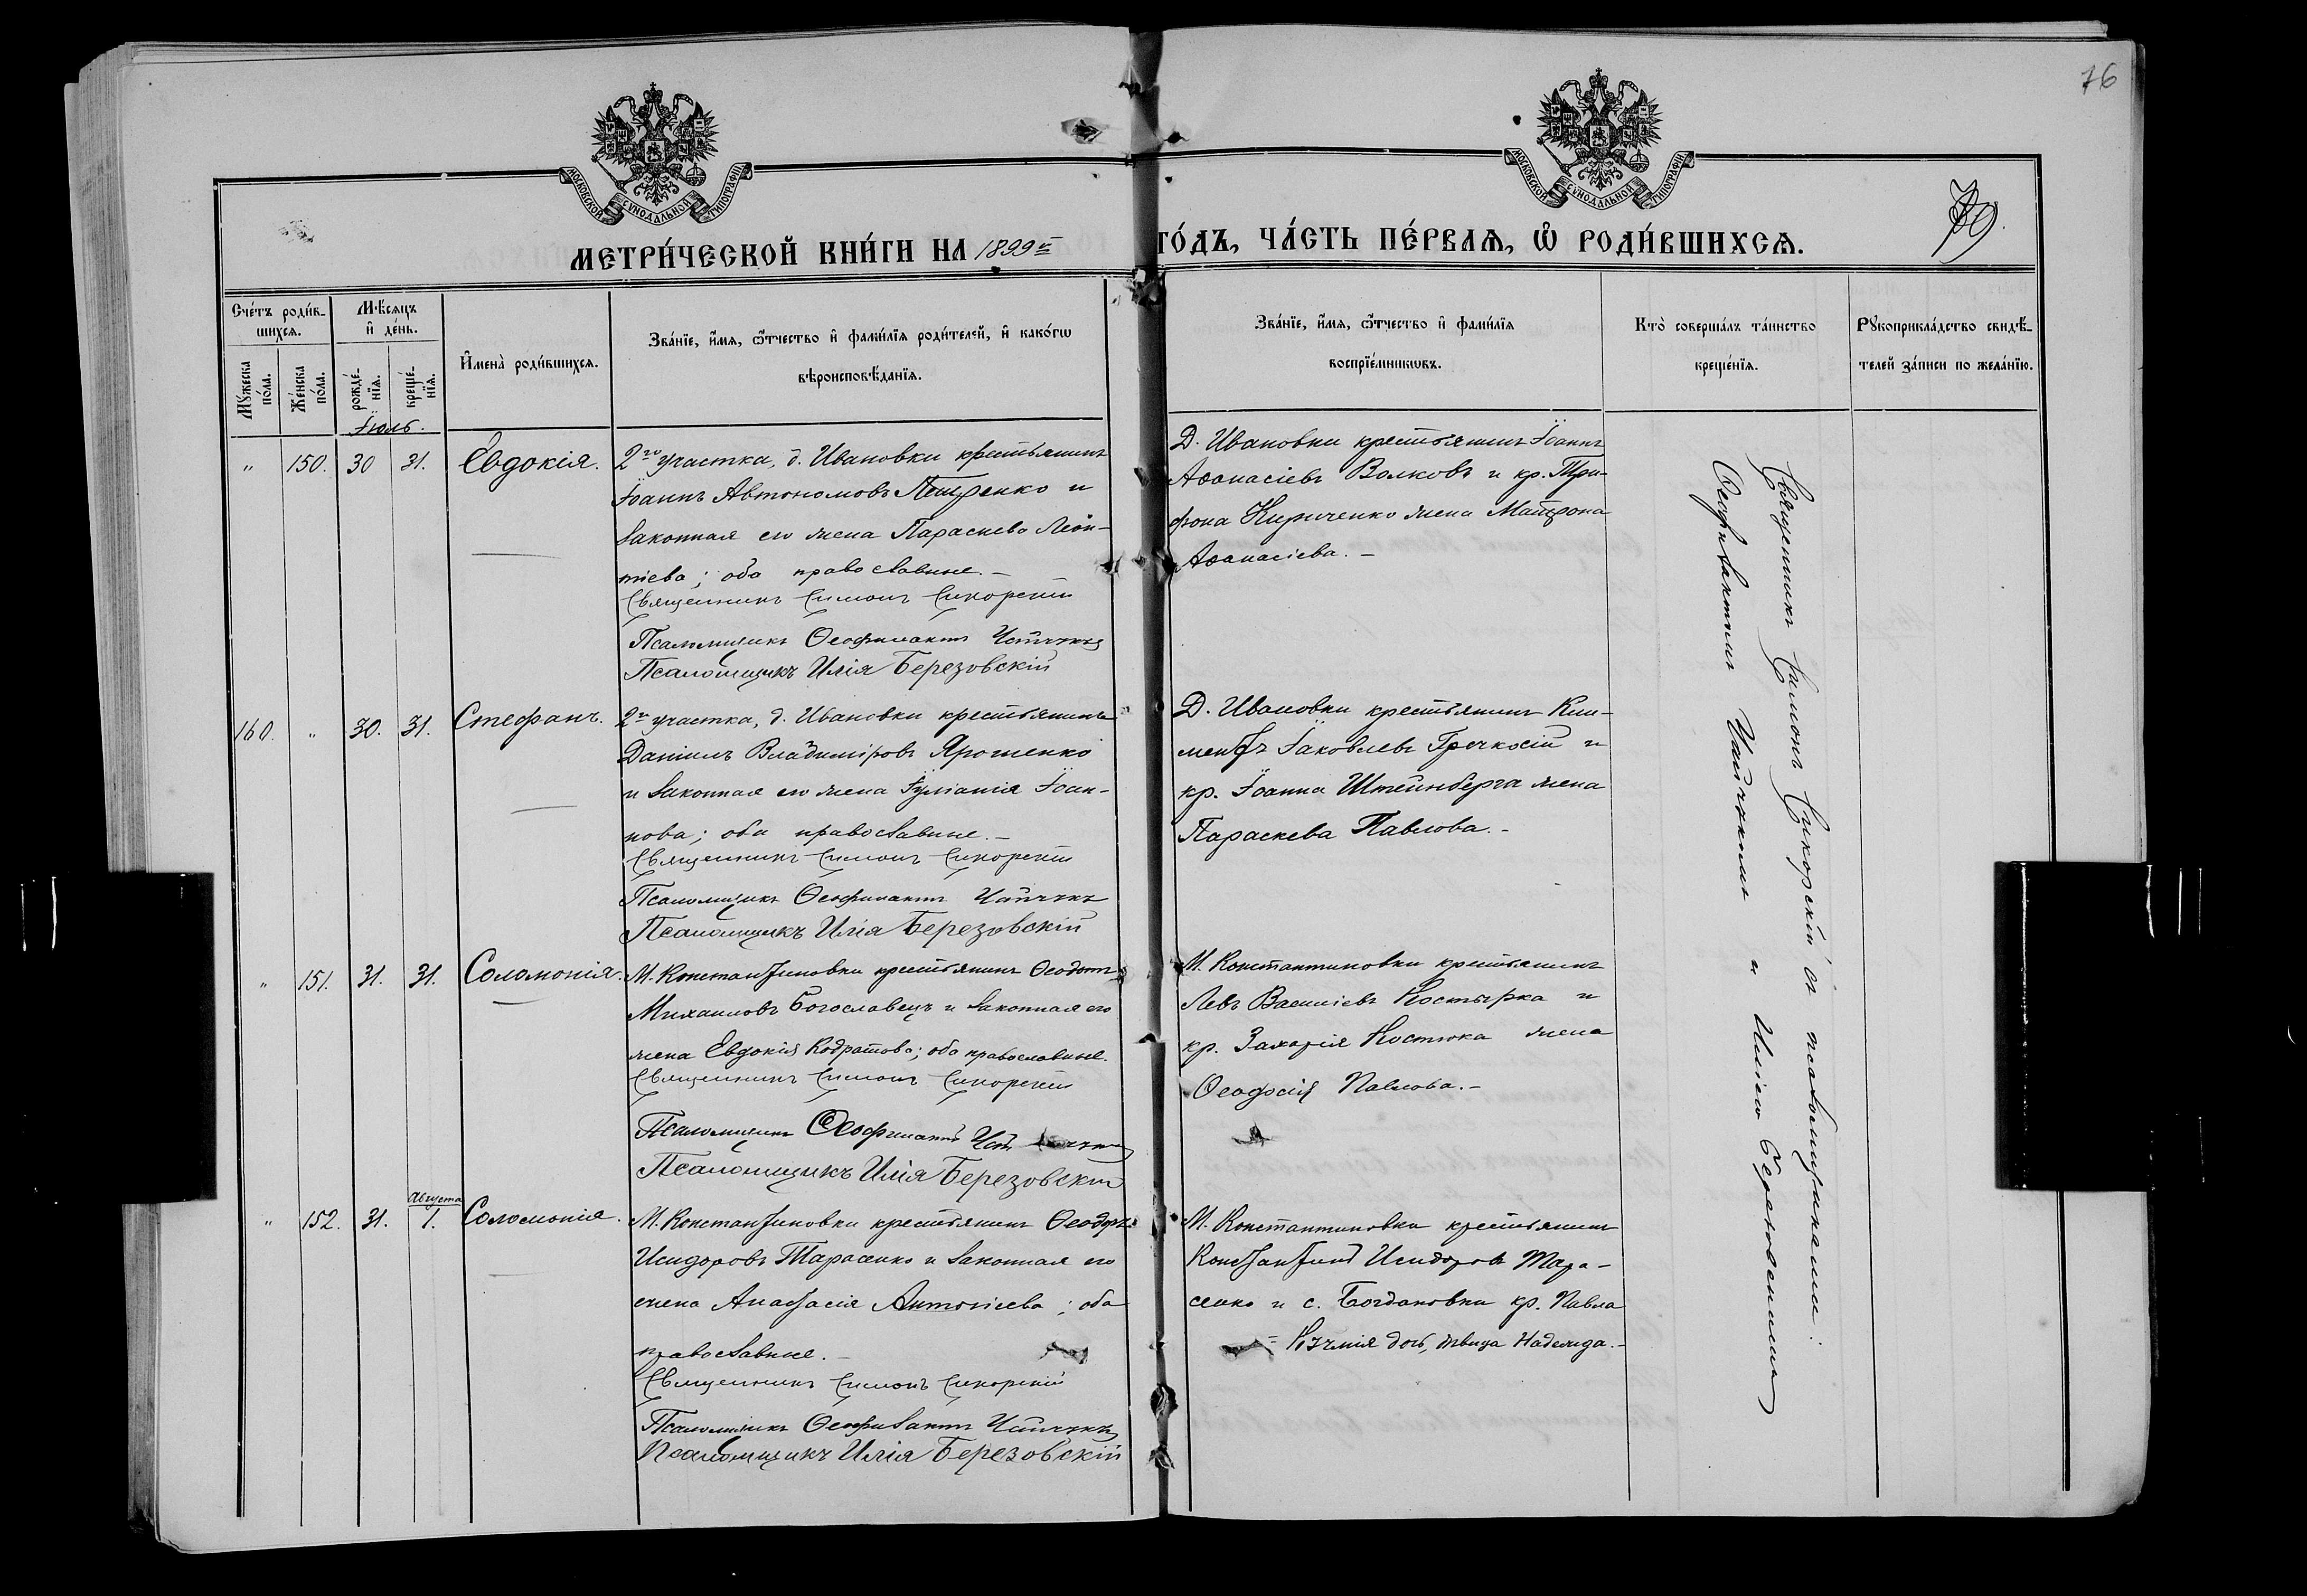 76
79.
МОСКОВСКОЙ СѴНОДАЛЬНОЙ ТИПОГРАФІИ
МОСКОВСКОЙ СѴНОДАЛЬНОЙ ТИПОГРАФІИ
МЕТРИ́ЧЕСКОЙ КНИ́ГИ НА 1899й
ГО́ДЪ, ЧА́СТЬ ПЕ́РВАѦ, Ѡ҆ РОДИ́ВШИХСѦ.
Сче́тъ роди́в-
шихсѧ.
Мѣ́сѧцъ
и҆ де́нь.
Мꙋ́жеска
по́ла.
Же́нска
по́ла.
рожде́-
нїѧ.
креще́-
нїѧ.
И҆мена̀ роди́вшихсѧ.
Зва́нїе, и҆́мѧ, ѻ҆́тчество и҆ фамі́лїѧ роди́телей, и҆ како́гѡ
вѣроисповѣ́данїѧ.
Зва́нїе, и҆́мѧ, ѻ҆́тчество и҆ фамі́лїѧ
воспрїе́мникѡвъ.
Кто̀ соверша́лъ та́инство
креще́нїѧ.
Рꙋкоприкла́дство свидѣ́-
телей за́писи по жела́нїю.
Іюль.
" 150. 30 31. Евдокія.
2го участка, д. Ивановки крестьянинъ
Іоаннъ Автономовъ Петренко и
законная его жена Параскева Леон-
тіева; оба православные.-
Священникъ Симонъ Сикорскій
Псаломщикъ Ѳеофилактъ Чайчукъ
Псаломщикъ Илія Березовскій
Д. Ивановки крестьянинъ Іоаннъ
Аѳанасіевъ Волковъ и кр. Три-
фона Кириченко жена Матрона
Аѳанасіева.-
160. " 30. 31. Стефанъ.
2го участка, д. Ивановки крестьянинъ
Даніилъ Владиміровъ Ярошенко
и законная его жена Іуліанія Іоан-
нова; оба православные.-
Священникъ Симонъ Сикорскій
Псаломщикъ Ѳеофилактъ Чайчукъ
Псаломщикъ Илія Березовскій
Д. Ивановки крестьянинъ Кли-
ментъ Іаковлевъ Гречкосій и
кр. Іоанна Штейнберга жена
Параскева Павлова.-
" 151. 31. 31. Соломонія.
М. Константиновки крестьянинъ Ѳеодотъ
Михаиловъ Богославецъ и законная его
жена Евдокія Кодратова; оба православные.
Священникъ Симонъ Сикорскій
Псаломщикъ Ѳеофилактъ Чайчукъ
Псаломщикъ Илія Березовскій
М. Константиновки крестьянинъ
Левъ Василіевъ Костырка и
кр. Захарія Костюка жена
Ѳеодосія Павлова.-
" 152. 31. Августа 1. Соломонія.
М. Константиновки крестьянинъ Ѳеодоръ
Исидоровъ Тарасенко и законная его
жена Анастасія Антоніева; оба
православные.-
Священникъ Симонъ Сикорскій
Псаломщикъ Ѳеофилактъ Чайчукъ
Псаломщикъ Илія Березовскій
М. Константиновки крестьянинъ
Константинъ Исидоровъ Тара-
сенко и с. Богдановки кр. Павла
дочь, дѣвица Надежда.-
Священникъ Симонъ Сикорскій съ псаломщиками:
Ѳеофилактомъ Чайчукомъ и Иліею Березовскимъ